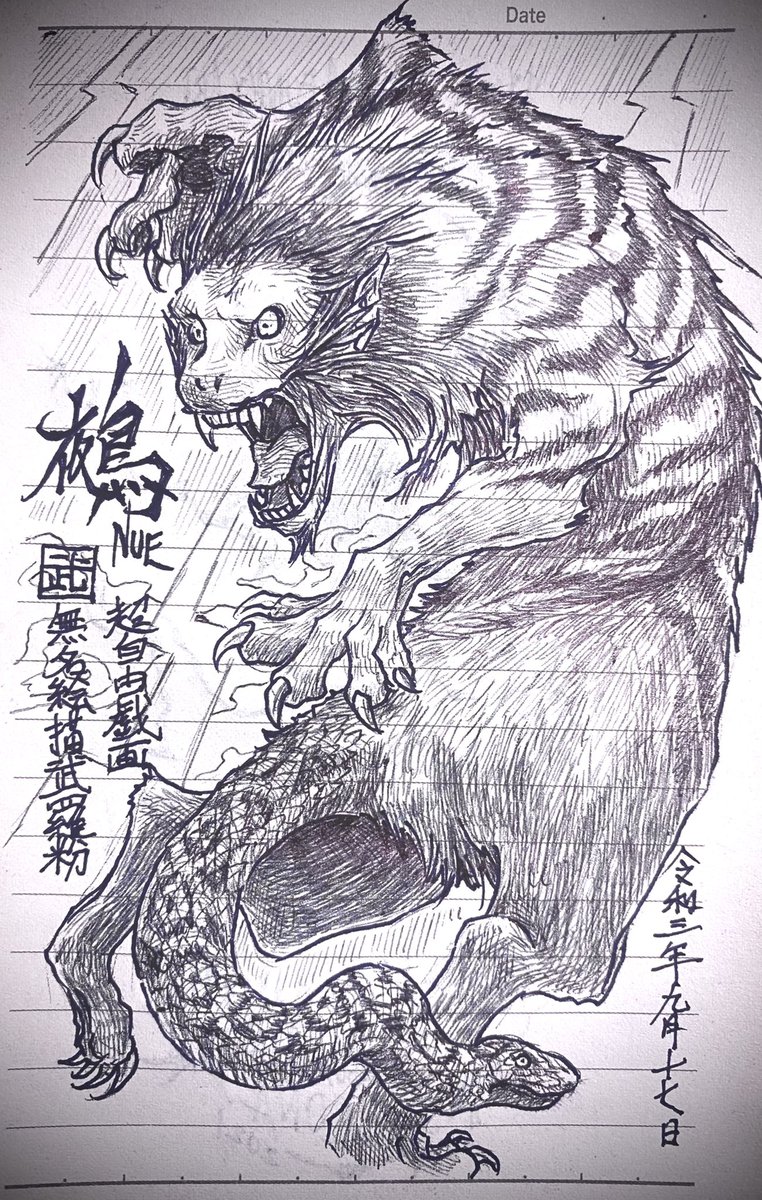 Date
鵺
NUE
超自由戯画
無名絵描武羅粉
令和三年九月十七日